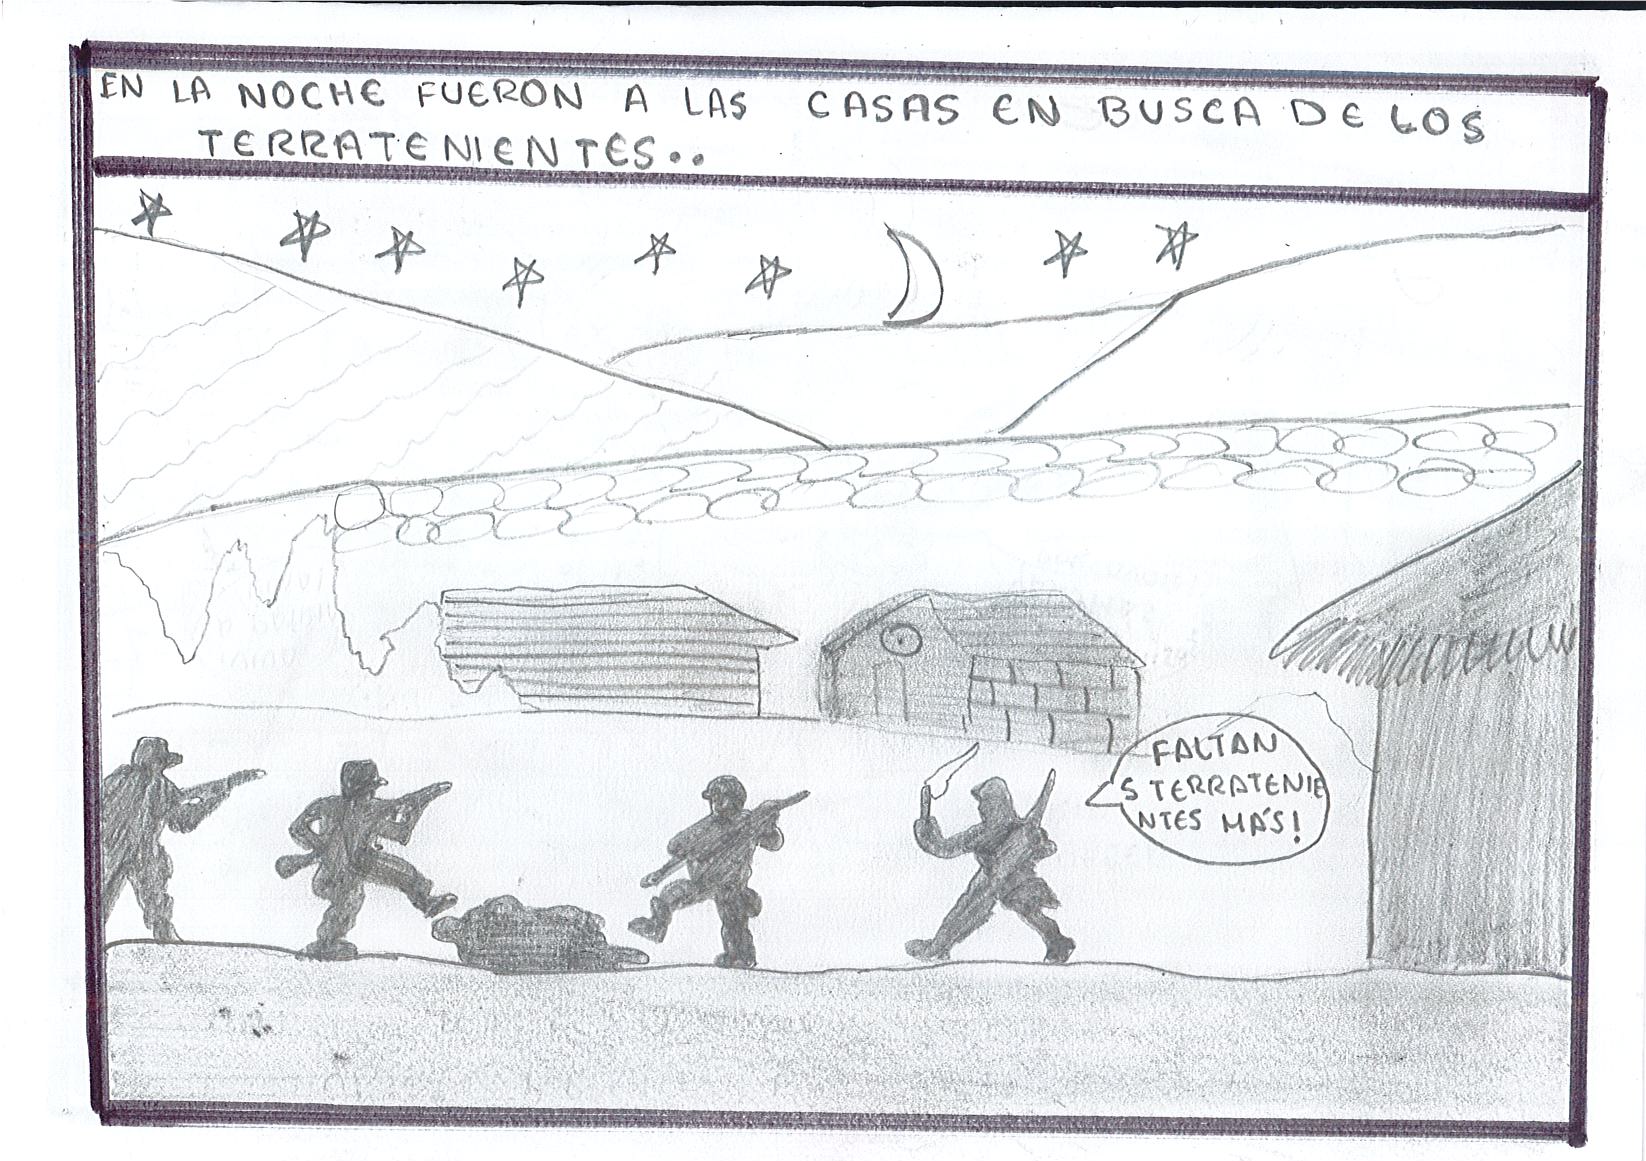 EN LA NOCHE FUERON A LAS CASAS EN BUSCA DE LOS
TERRATENIENTES..
FALTAN
5 TERRATENIE
NTES MÁS!